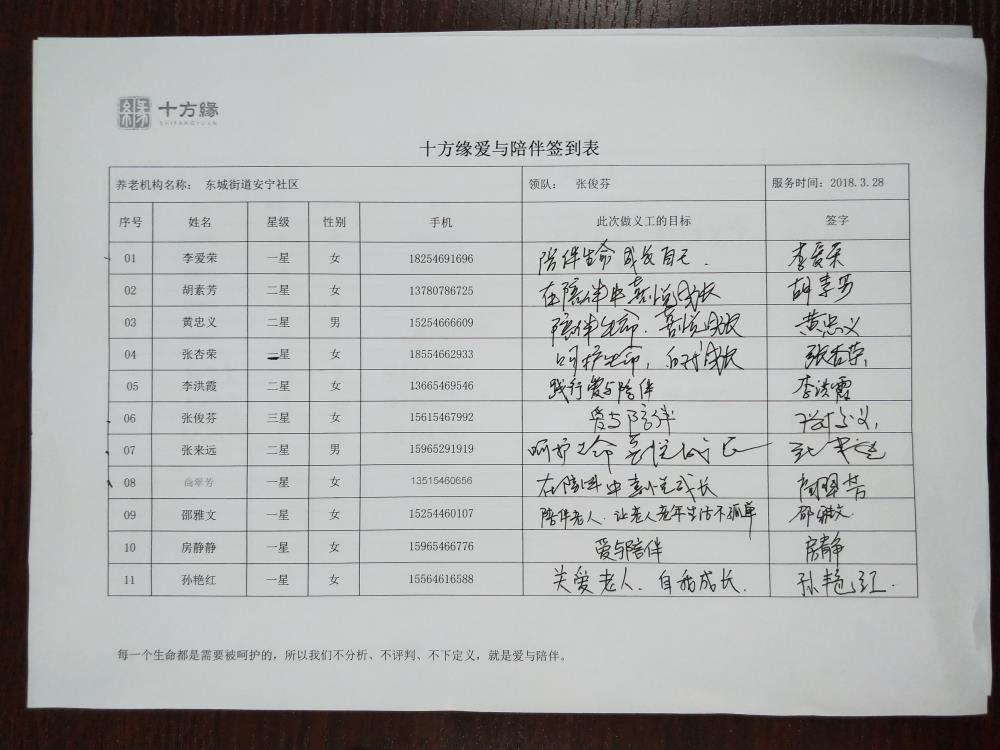 十方緣
SHIFANGYUAN
十方缘爱与陪伴签到表
养老机构名称： 东城街道安宁社区 领队： 张俊芬 服务时间：2018.3.28
序号 姓名 星级 性别 手机 此次做义工的目标 签字
01 李爱荣 一星 女 18254691696 陪伴生命 成长自己. 李爱荣
02 胡素芳 二星 女 13780786725 在陪伴中喜悦成长 胡素芳
03 黄忠义 二星 男 15254666609 陪伴生命.喜悦成长 黄忠义
04 张杏荣 二星 女 18554662933 呵护生命， 成长 张杏荣
05 李洪霞 二星 女 13665469546 践行爱与陪伴 李洪霞
06 张俊芬 三星 女 15615467992 爱与陪伴
07 张来远 二星 男 15965291919 呵护生命 喜悦
08 商翠芳 一星 女 13515460656 在陪伴中喜悦成长 商翠芳
09 邵雅文 一星 女 15254460107 陪伴老人.让老人老年生活不孤单 邵雅文
10 房静静 一星 女 15965466776 爱与陪伴 房静
11 孙艳红 一星 女 15564616588 关爱老人.自我成长. 孙艳红.
每一个生命都是需要被呵护的，所以我们不分析、不评判、不下定义，就是爱与陪伴。